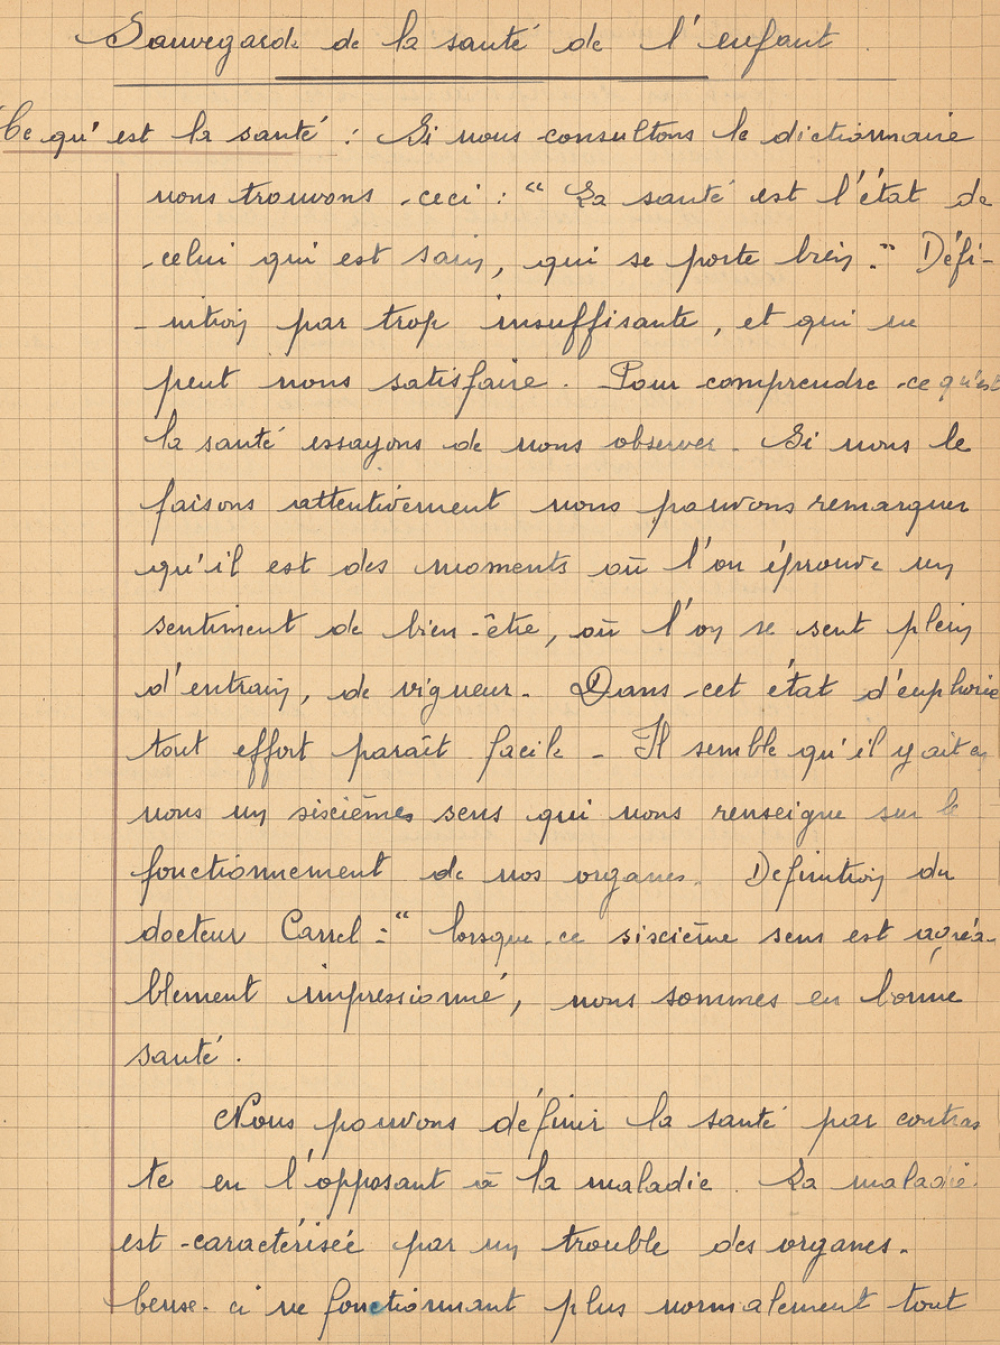 Sauvegarde de la santé de l'enfant
Ce qu'est la santé : Si nous consultons le dictionnaire
nous trouvons ceci : “ La santé est l'état de
celui qui est sain, qui se porte bien. ” Défi-
-nition par trop insuffisante, et qui ne
peut nous satisfaire. Pour comprendre ce qu'est
la santé essayons de nous observer. Si nous le
faisons attentivement nous pouvons remarquer
qu'il est des moments où l'on éprouve un
sentiment de bien-être, où l'on se sent plein
d'entrain, de vigueur. Dans cet état d'euphorie
tout effort paraît facile - Il semble qu'il y ait en
nous un sixièmes sens qui nous renseigne sur le
fonctionnement de nos organes. Definition du
docteur Carrel : “ lorsque ce sixième sens est agréa-
blement impressionné, nous sommes en bonne
santé.
Nous pouvons définir la santé par contras
te en l'opposant à la maladie. La maladie
est caractérisée par un trouble des organes.
Ceux-ci ne fonctionnant plus normalement tout